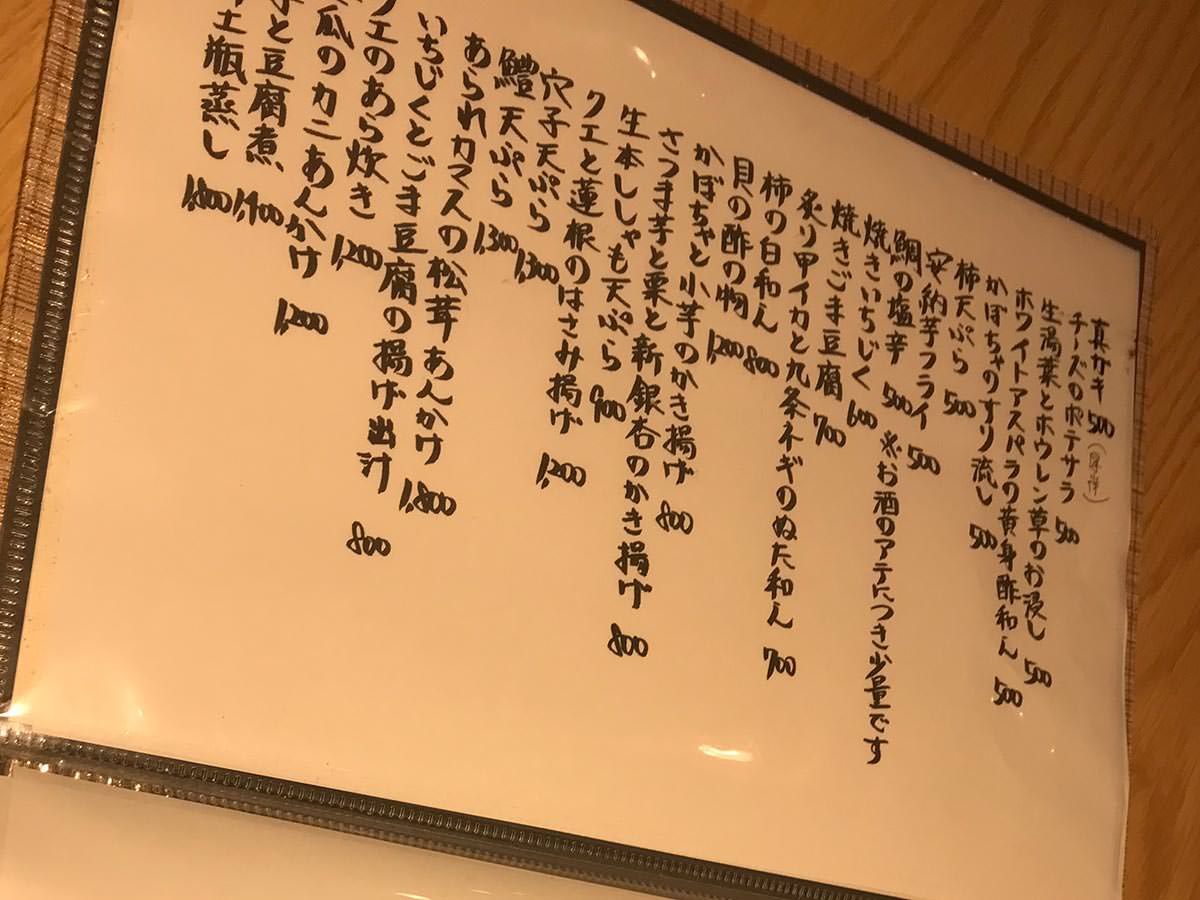 真がキ 500 (厚岸)
チーズのポテサラ 500
生湯葉とホウレン草のお浸し 500
ホワイトアスパラの黄身酢和え 500
かぼちゃのすり流し 500
柿天ぷら 500
安納芋フライ 500
鯛の塩辛 500 ※お酒のアテにつき少量です
焼きいちじく 600
焼きごま豆腐 700
炙り甲イカと九条ネギのぬた和え 700
柿の白和え 800
貝の酢の物 1,200
かぼちゃと小芋のかき揚げ 800
さつま芋と栗と新銀杏のかき揚げ 800
生本ししゃも天ぷら 900
クエと蓮根のはさみ揚げ 1,200
穴子天ぷら 1,300
鱧天ぷら 1,300
あられカマスの松茸あんかけ 1,800
いちじくとごま豆腐の揚げ出汁 800
クエのあら炊き 1,200
瓜のカニあんかけ 1,200
と豆腐煮 1,400
土瓶蒸し 1,800